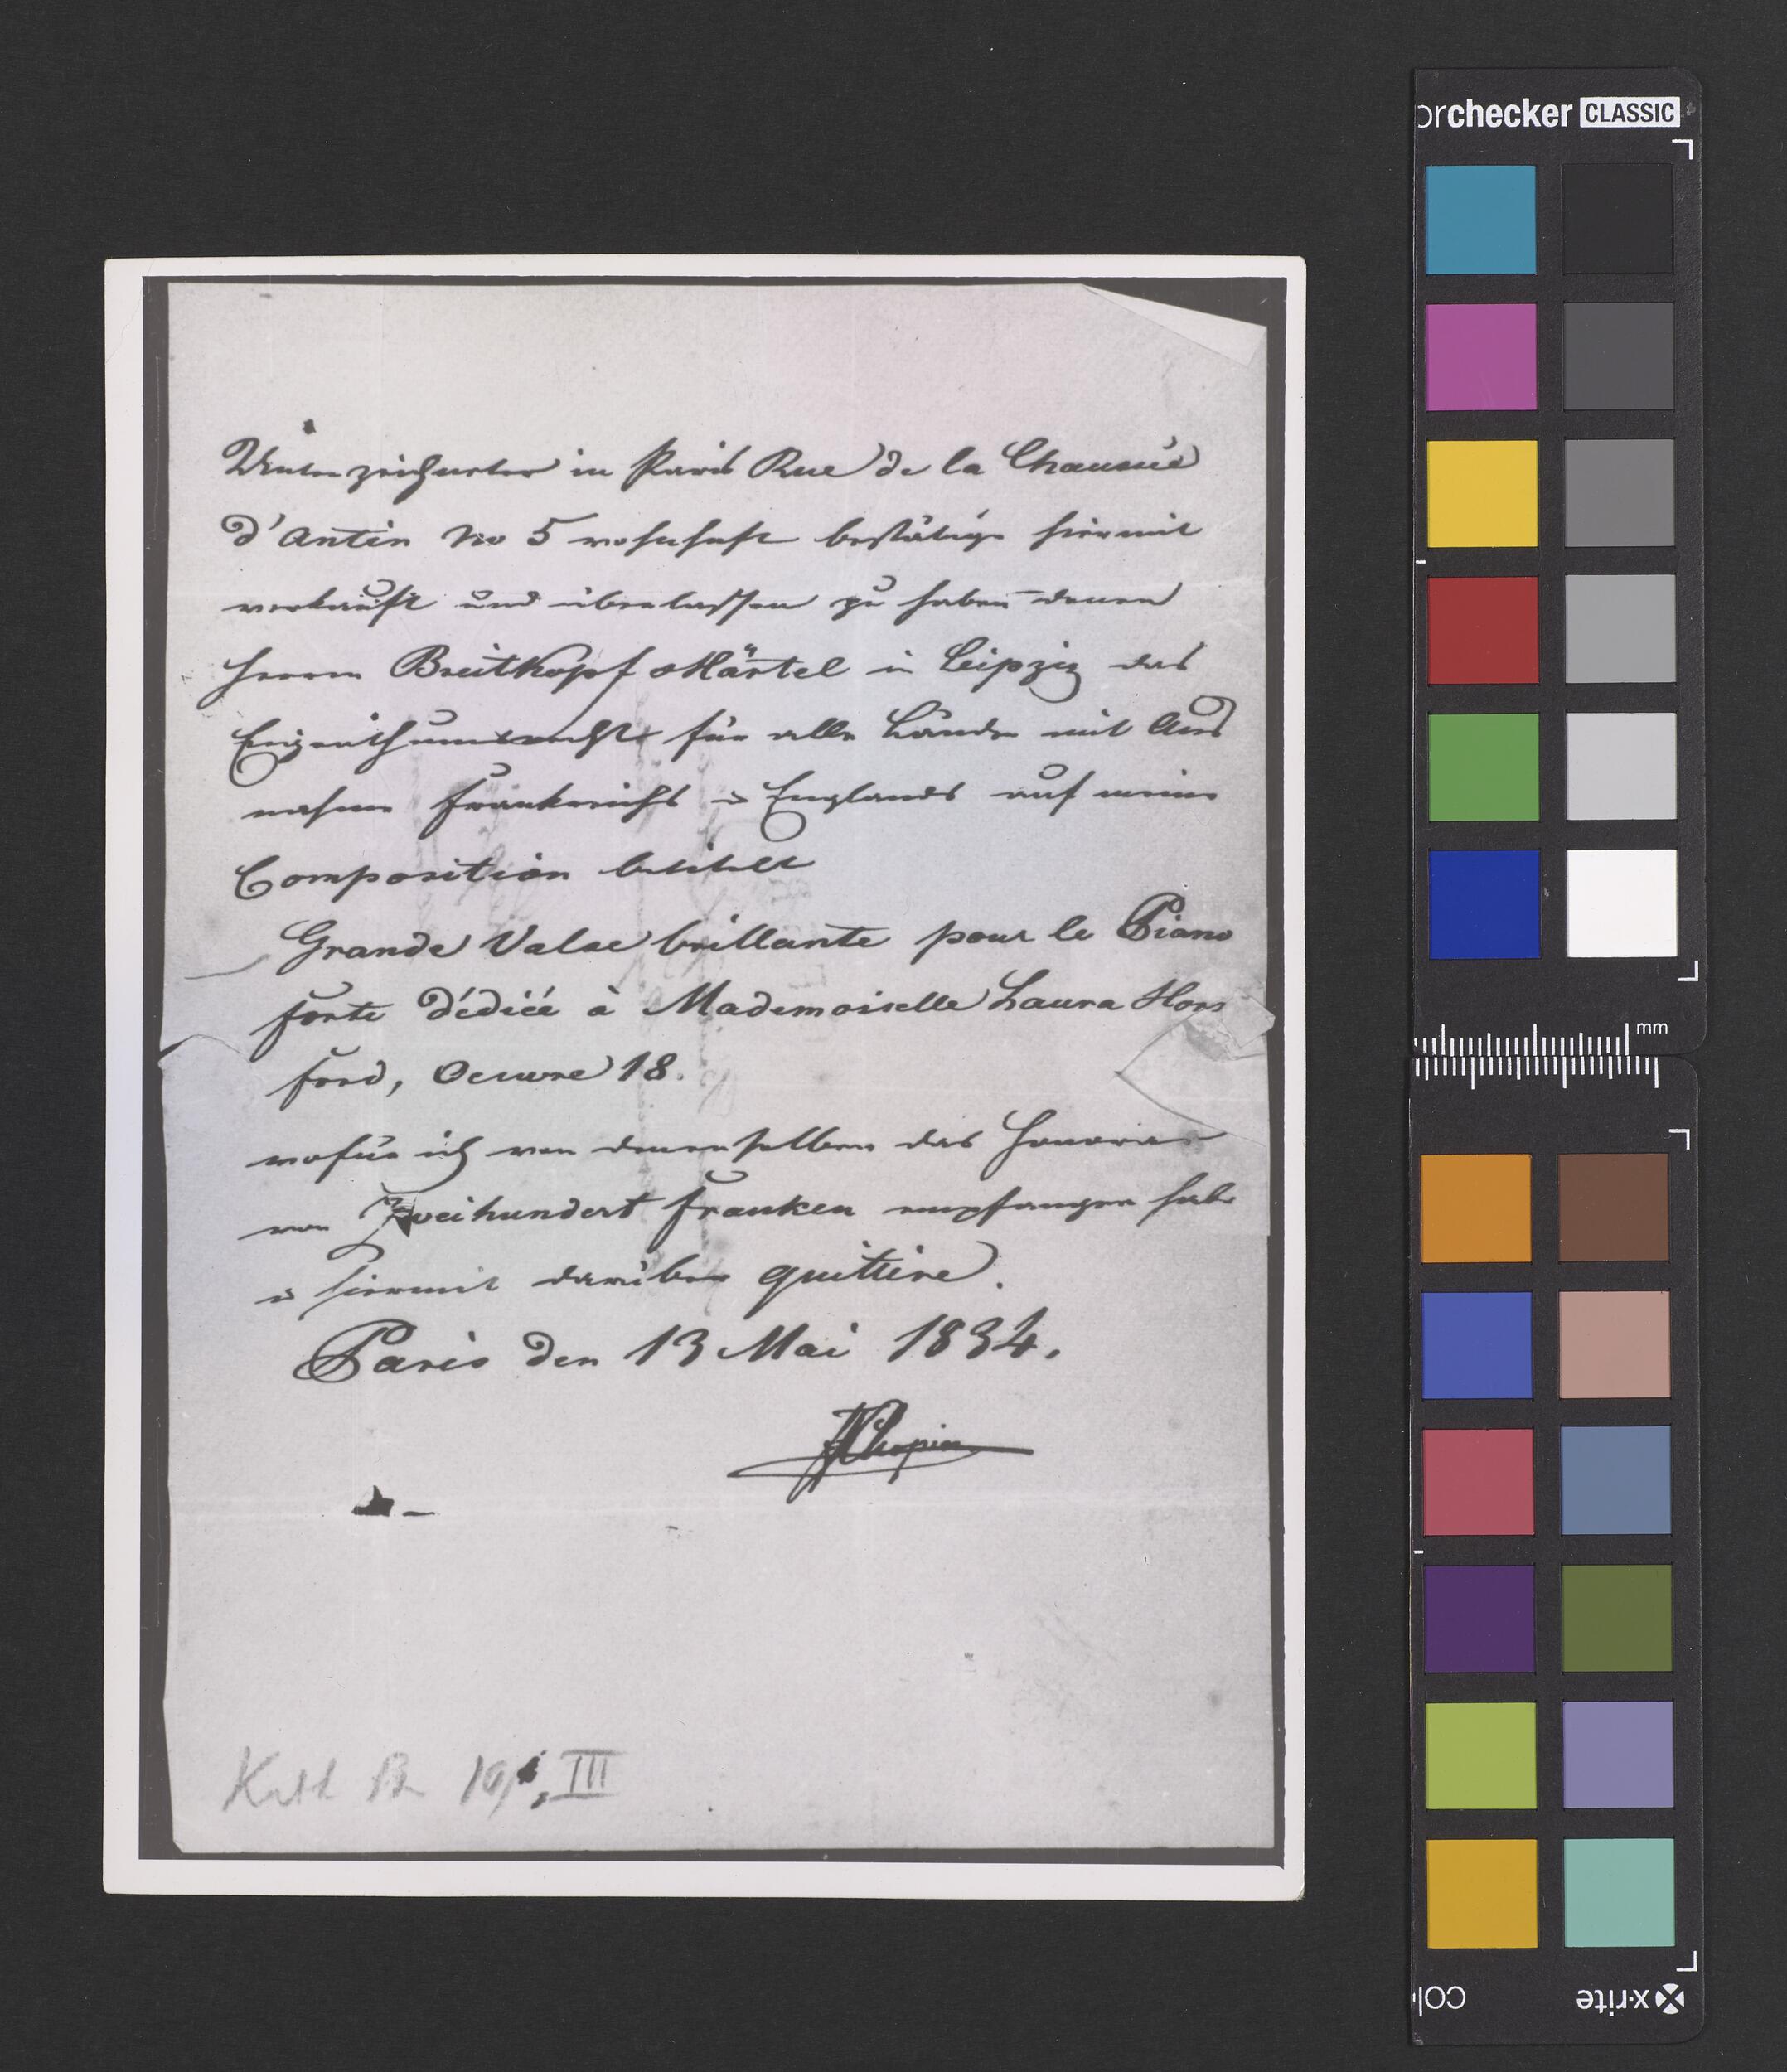 Unterzeichneter in Paris Rue de la Chaussée
d'Antin No 5 wohnhaft bestätige hiermit
verkauft und überlassen zu haben denen
Herren Breitkopf & Härtel in Leipzig das
Eigenthumsrecht für alle Länder mit Aus
nahme Frankreichs u Englands auf meine
Composition betitelt
Grande Valse brillante pour le Piano
forte dédiée à Mademoiselle Laura Hors
ford, Oeuvre 18.
wofür ich von denenselben das Honorar
von Zweihundert Franken empfangen habe
u hiermit darüber quittire.
Paris den 13 Mai 1834.
FChopin
III
orchecker CLASSIC
mm
x-rite
col